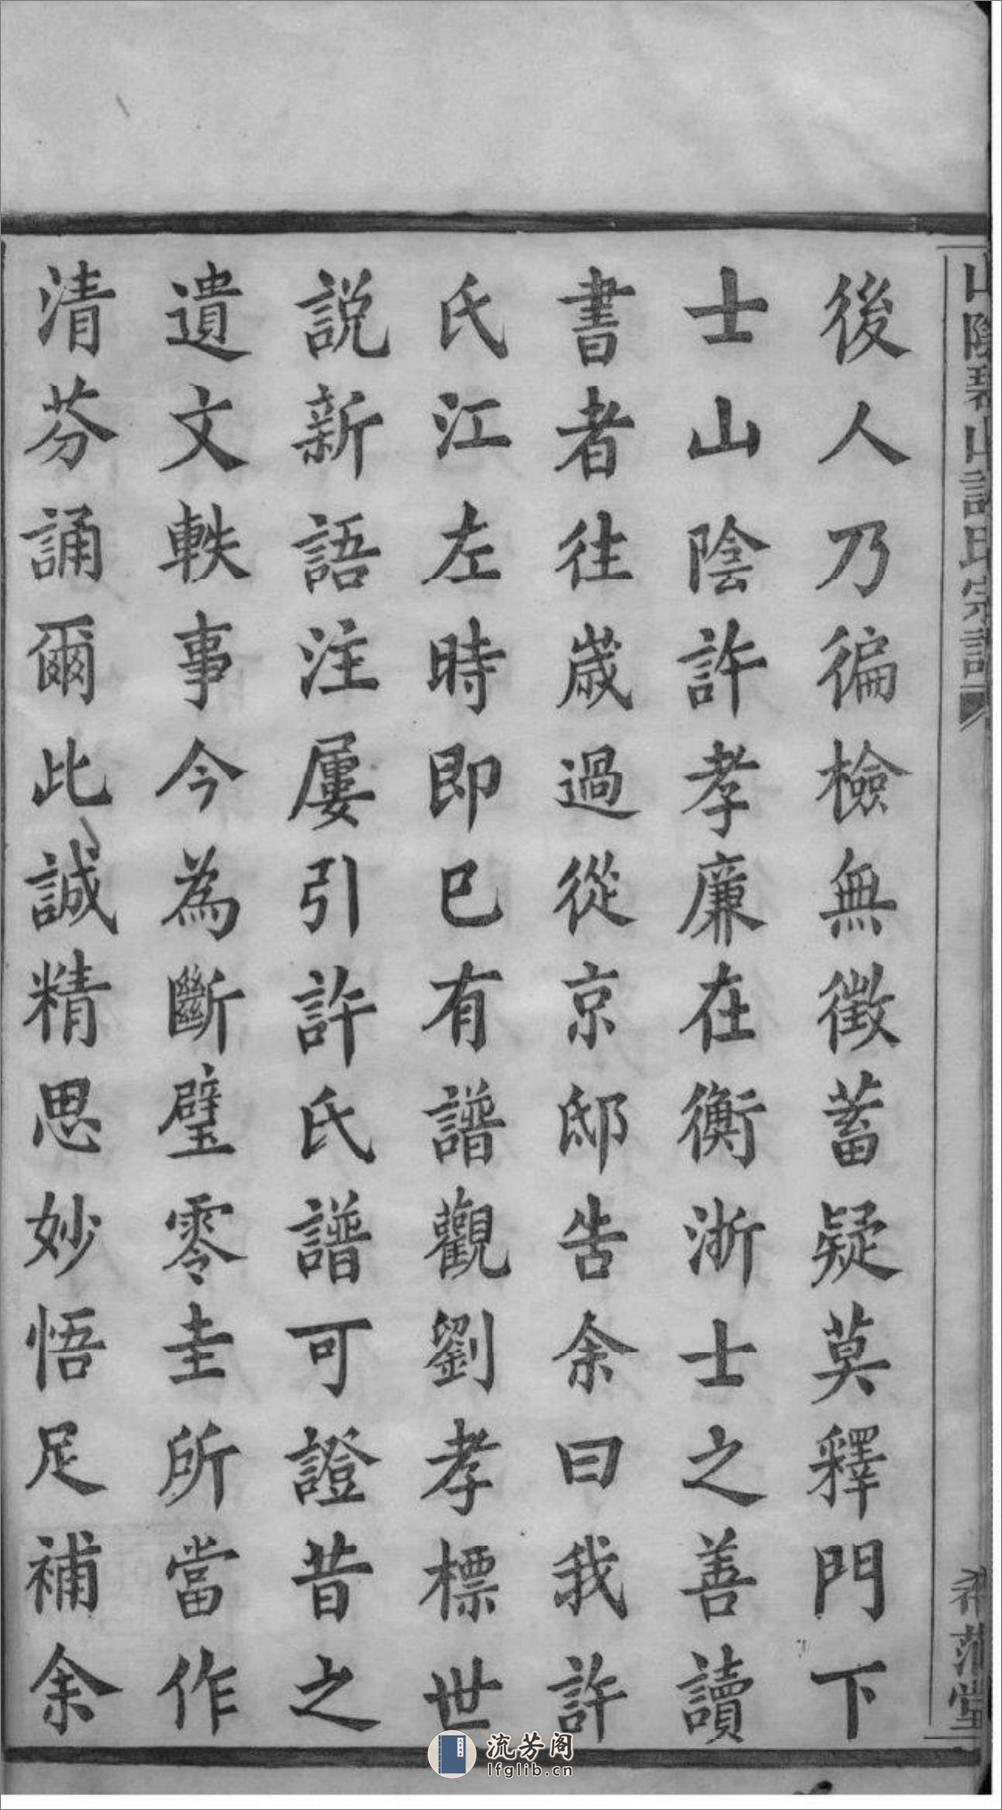 山陰碧山許氏宗譜
後人乃徧檢無徵蓄疑莫釋門下
士山陰許孝廉在衡浙士之善讀
書者往歲過從京邸告余曰我許
氏江左時即已有譜觀劉孝標世
說新語注屢引許氏譜可證昔之
遺文軼事今為斷璧零圭所當作
清芬誦爾此誠精思妙悟足補余
流芳阁
lfglib.cn